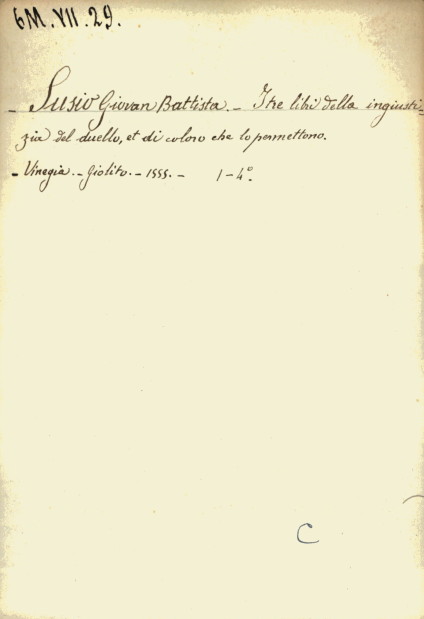 6M.VII.29.
- Susio Giovan Battista. - I tre libri della ingiusti-
zia del duello, et di coloro che lo permettono.
- Vinegia. - Giolito. - 1555. - 1-4°.
C